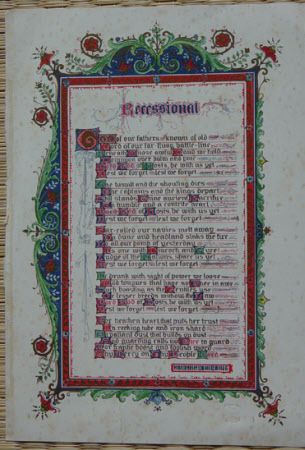 Recessional
God of our fathers, known of old
Lord of our far-flung battle-line
Beneath Whose awful Hand we hold
Dominion over palm and pine
Lord God of Hosts, be with us yet
Lest we forget lest we forget
The tumult and the shouting dies
The captains and the kings depart
Still stands Thine ancient Sacrifice
An humble and a contrite heart
Lord God of Hosts, be with us yet
Lest we forget lest we forget
Far-called our navies melt away
On dune and headland sinks the fire
Lo, all our pomp of yesterday
Is one with Nineveh and Tyre
Judge of the Nations, spare us yet
Lest we forget lest we forget
If, drunk with sight of power we loose
Wild tongues that have not Thee in awe
Such boasting as the Gentiles use
Or lesser breeds without the Law
Lord God of Hosts, be with us yet
Lest we forget lest we forget
For heathen heart that puts her trust
In reeking tube and iron shard
All valiant dust that builds on dust
And guarding calls not Thee to guard
For frantic boast and foolish word
Thy Mercy on Thy People Lord